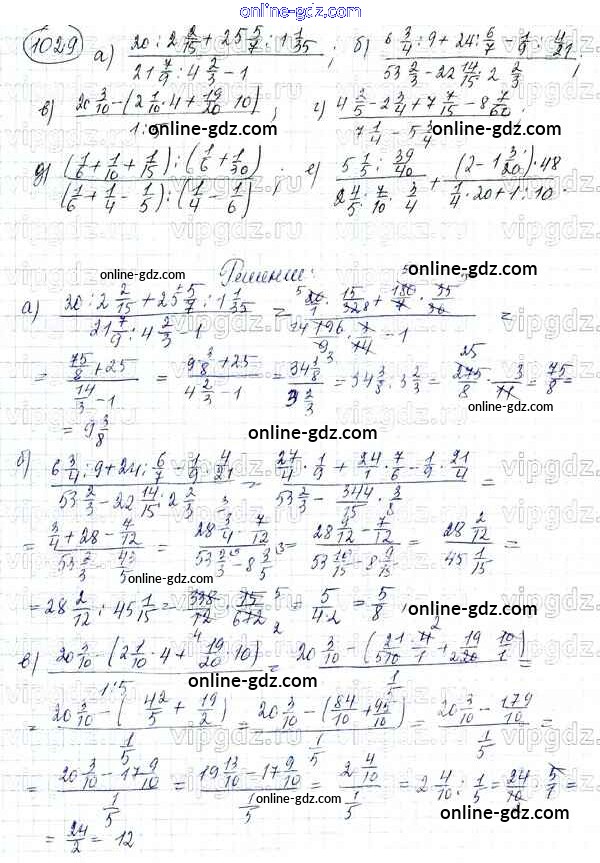 online-gdz.com
1029 а) (20 : 2 2/15 + 25 5/7 : 1 1/35) / (21 7/9 : 4 2/3 - 1) ; б) (6 3/4 : 9 + 24 : 6/7 - 1/9 : 4/21) / (53 2/3 - 22 14/15 : 2 2/3) ;
в) (20 3/10 - (2 1/10 · 4 + 19/20 · 10)) / (1 : 5) ; г) (4 2/5 - 2 3/4 + 7 7/15 - 8 7/60) / (7 1/4 - 5 3/4)
online-gdz.com online-gdz.com
д) ((1/6 + 1/10 + 1/15) : (1/6 + 1/30)) / ((1/6 + 1/4 - 1/5) : (1/4 - 1/6)) ; е) (5 1/5 : 39/40) / (2 4/5 · 7/10 · 3/4) + ((2 - 1 3/20) · 48) / (1/4 · 20 + 1 : 10)
online-gdz.com online-gdz.com
Решение:
а) (20 : 2 2/15 + 25 5/7 : 1 1/35) / (21 7/9 : 4 2/3 - 1) = (20/1 · 15/32 + 180/7 · 35/36) / (196/9 · 3/14 - 1) =
= (75/8 + 25) / (14/3 - 1) = (9 3/8 + 25) / (4 2/3 - 1) = (34 3/8) / (3 2/3) = 34 3/8 : 3 2/3 = 275/8 · 3/11 = 75/8 =
online-gdz.com
= 9 3/8
online-gdz.com
б) (6 3/4 : 9 + 24 : 6/7 - 1/9 : 4/21) / (53 2/3 - 22 14/15 : 2 2/3) = (27/4 · 1/9 + 24/1 · 7/6 - 1/9 · 21/4) / (53 2/3 - 344/15 · 3/8) =
= (3/4 + 28 - 7/12) / (53 2/3 - 43/5) = (28 3/4 - 7/12) / (53 2/3 - 8 3/5) = (28 9/12 - 7/12) / (53 10/15 - 8 9/15) = (28 2/12) / (45 1/15) =
online-gdz.com online-gdz.com
= 28 2/12 : 45 1/15 = 338/12 · 15/676 = 5/(4·2) = 5/8
online-gdz.com
в) (20 3/10 - (2 1/10 · 4 + 19/20 · 10)) / (1:5) = (20 3/10 - (21/10 · 4/1 + 19/20 · 10/1)) / (1/5) =
online-gdz.com
= (20 3/10 - (42/5 + 19/2)) / (1/5) = (20 3/10 - (84/10 + 95/10)) / (1/5) = (20 3/10 - 179/10) / (1/5) =
online-gdz.com
= (20 3/10 - 17 9/10) / (1/5) = (19 13/10 - 17 9/10) / (1/5) = (2 4/10) / (1/5) = 2 4/10 : 1/5 = 24/10 · 5/1 =
online-gdz.com online-gdz.com
= 24/2 = 12
online-gdz.com